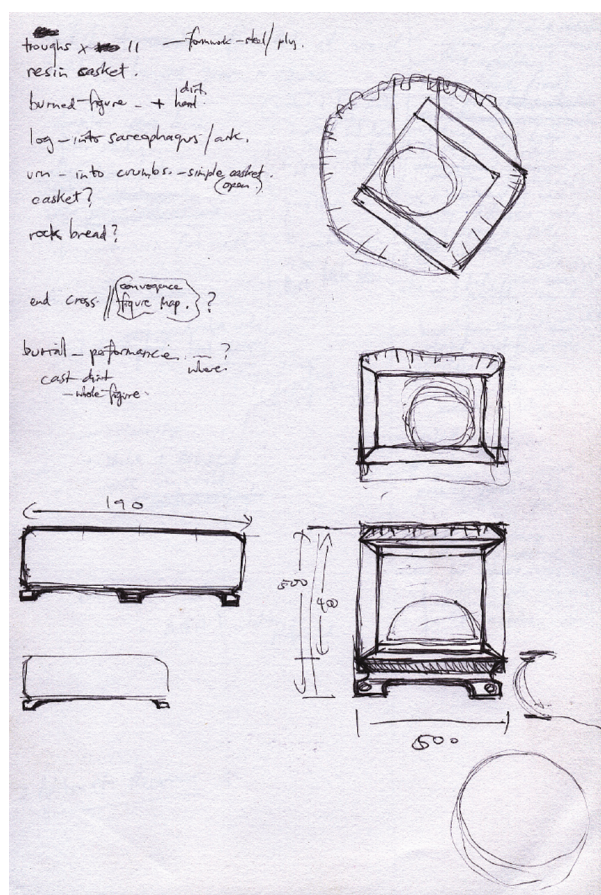 troughs x 11 — formwork - steel/ply.
resin casket.
burned figure - + dirt hand.
log - into sarcophagus/ark.
urn - into crumbs. - simple casket.
(open)
casket?
rock bread?
end cross // convergence
figure map. } ?
burial - performance ... — ?
where
cast dirt
- whole figure.
190
500
400
500